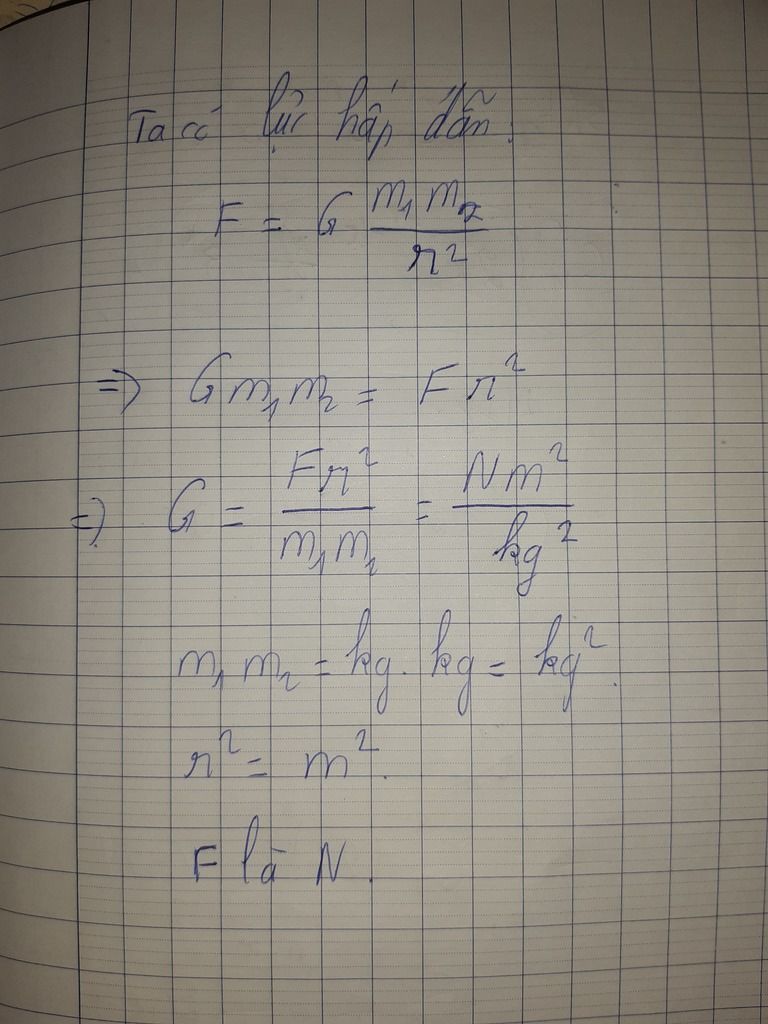 Ta có lực hấp dẫn:
F = G m₁ m₂ / r²
=> G m₁ m₂ = F r²
=> G = F r² / m₁ m₂ = N m² / kg²
m₁ m₂ = kg . kg = kg².
r² = m².
F là N.